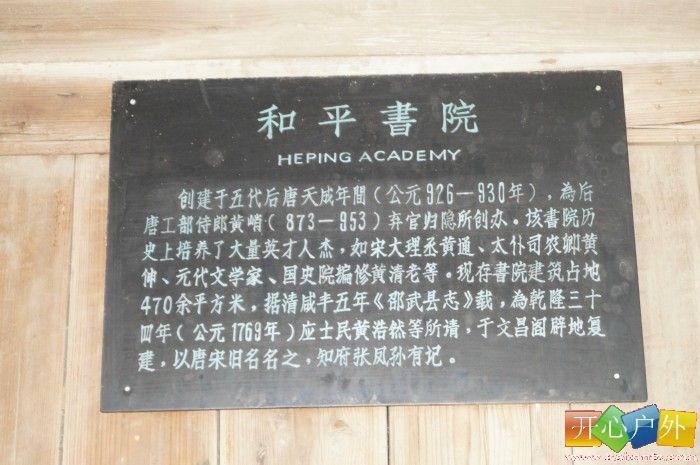 和平書院
HEPING ACADEMY
创建于五代后唐天成年間（公元926—930年），為后
唐工部侍郎黄峭（873—953）弃官归隐所创办。该書院历
史上培养了大量英才人杰，如宋大理丞黄通、太仆司农卿黄
伸、元代文学家、国史院编修黄清老等。现存書院建筑占地
470余平方米，据清咸丰五年《邵武县志》载，為乾隆三十
四年（公元1769年）应士民黄浩然等所请，于文昌阁辟地复
建，以唐宋旧名名之，知府张凤孙有记。
开心户外